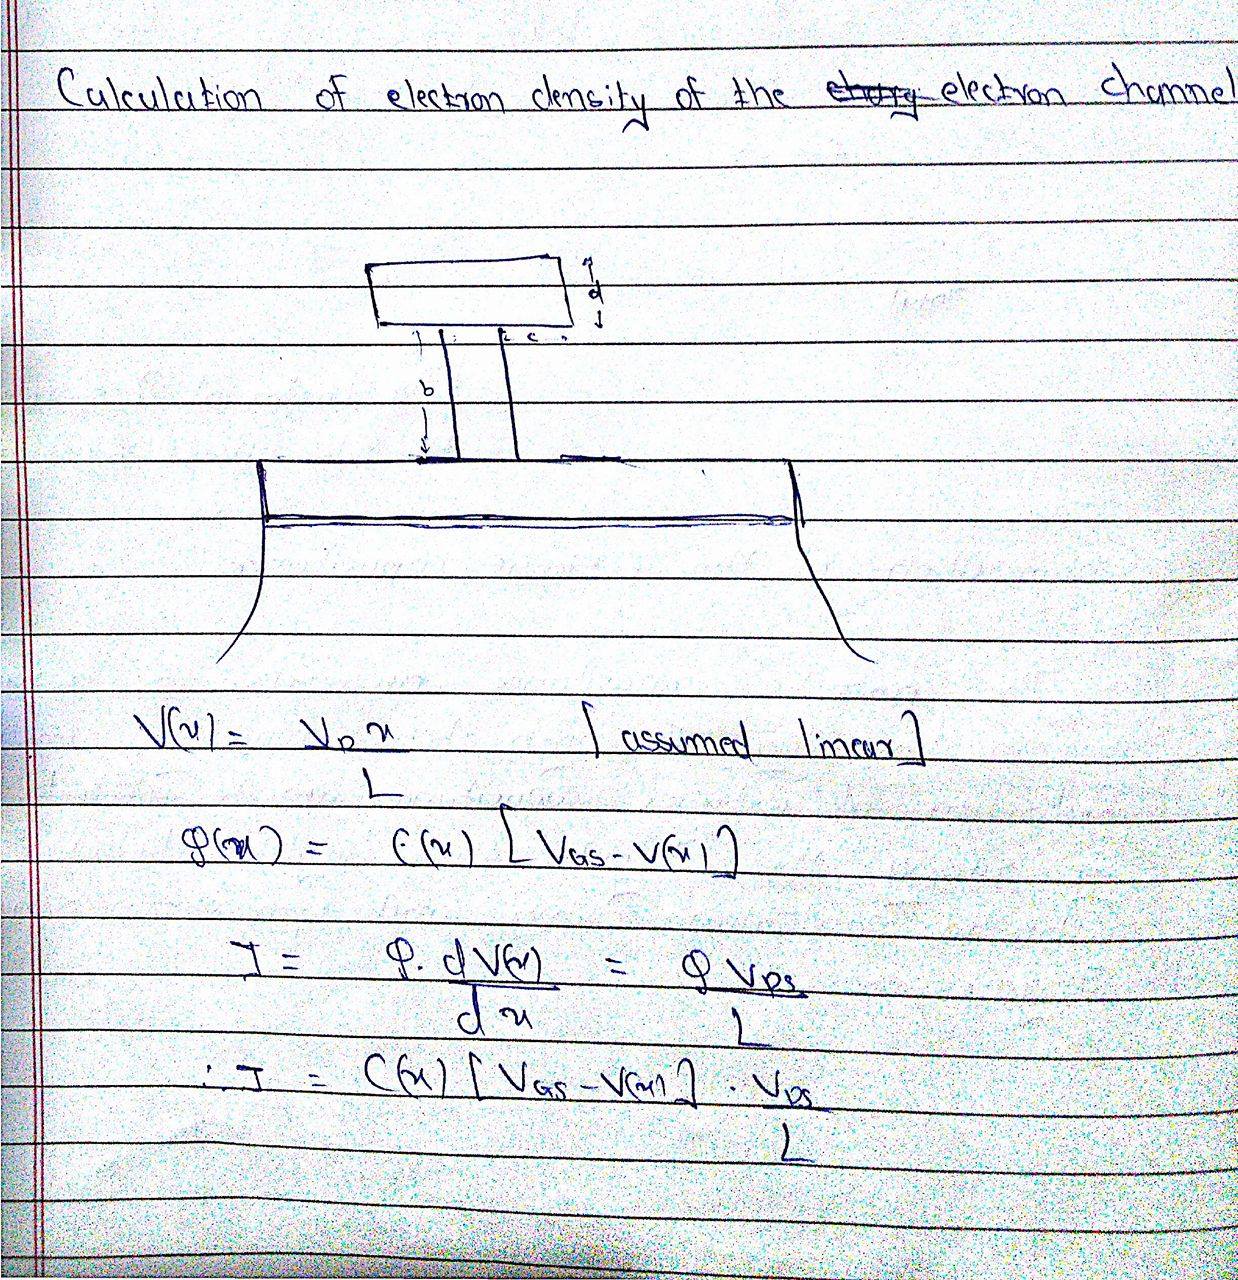 Calculation of electron density of the electron channel
d
c
b
V(x) = V_D x / L [assumed linear]
ρ(x) = C(x) [V_GS - V(x)]
J = ρ. dV(x) / dx = ρ V_DS / L
∴ J = C(x) [V_GS - V(x)] . V_DS / L